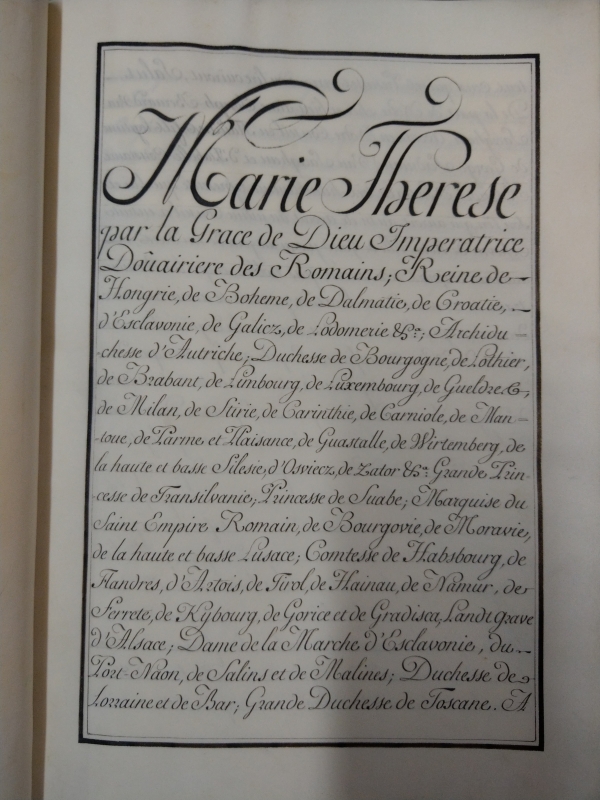 Marie Therese
par la Grace de Dieu Imperatrice
Doüairiere des Romains; Reine de
Hongrie, de Boheme, de Dalmatie, de Croatie,
d'Esclavonie, de Galicz, de Lodomerie &ca; Archidu=
chesse d'Autriche; Duchesse de Bourgogne, de Lothier,
de Brabant, de Limbourg, de Luxembourg, de Gueldre &;
de Milan, de Stirie, de Carinthie, de Carniole, de Man=
toue, de Parme et Plaisance, de Guastalle, de Wirtemberg, de
la haute et basse Silesie, d'Osviecz, de Zator &ca Grande Prin=
cesse de Transilvanie; Princesse de Suabe; Marquise du
Saint Empire Romain, de Bourgovie, de Moravie,
de la haute et basse Lusace; Comtesse de Habsbourg, de
Flandres, d'Artois, de Tirol, de Hainau, de Namur, de
Ferrete, de Kybourg, de Gorice et de Gradisca, Landtgrave
d'Alsace; Dame de la Marche d'Esclavonie, du
Port-Naon, de Salins et de Malines; Duchesse de
Lorraine et de Bar; Grande Duchesse de Toscane. A